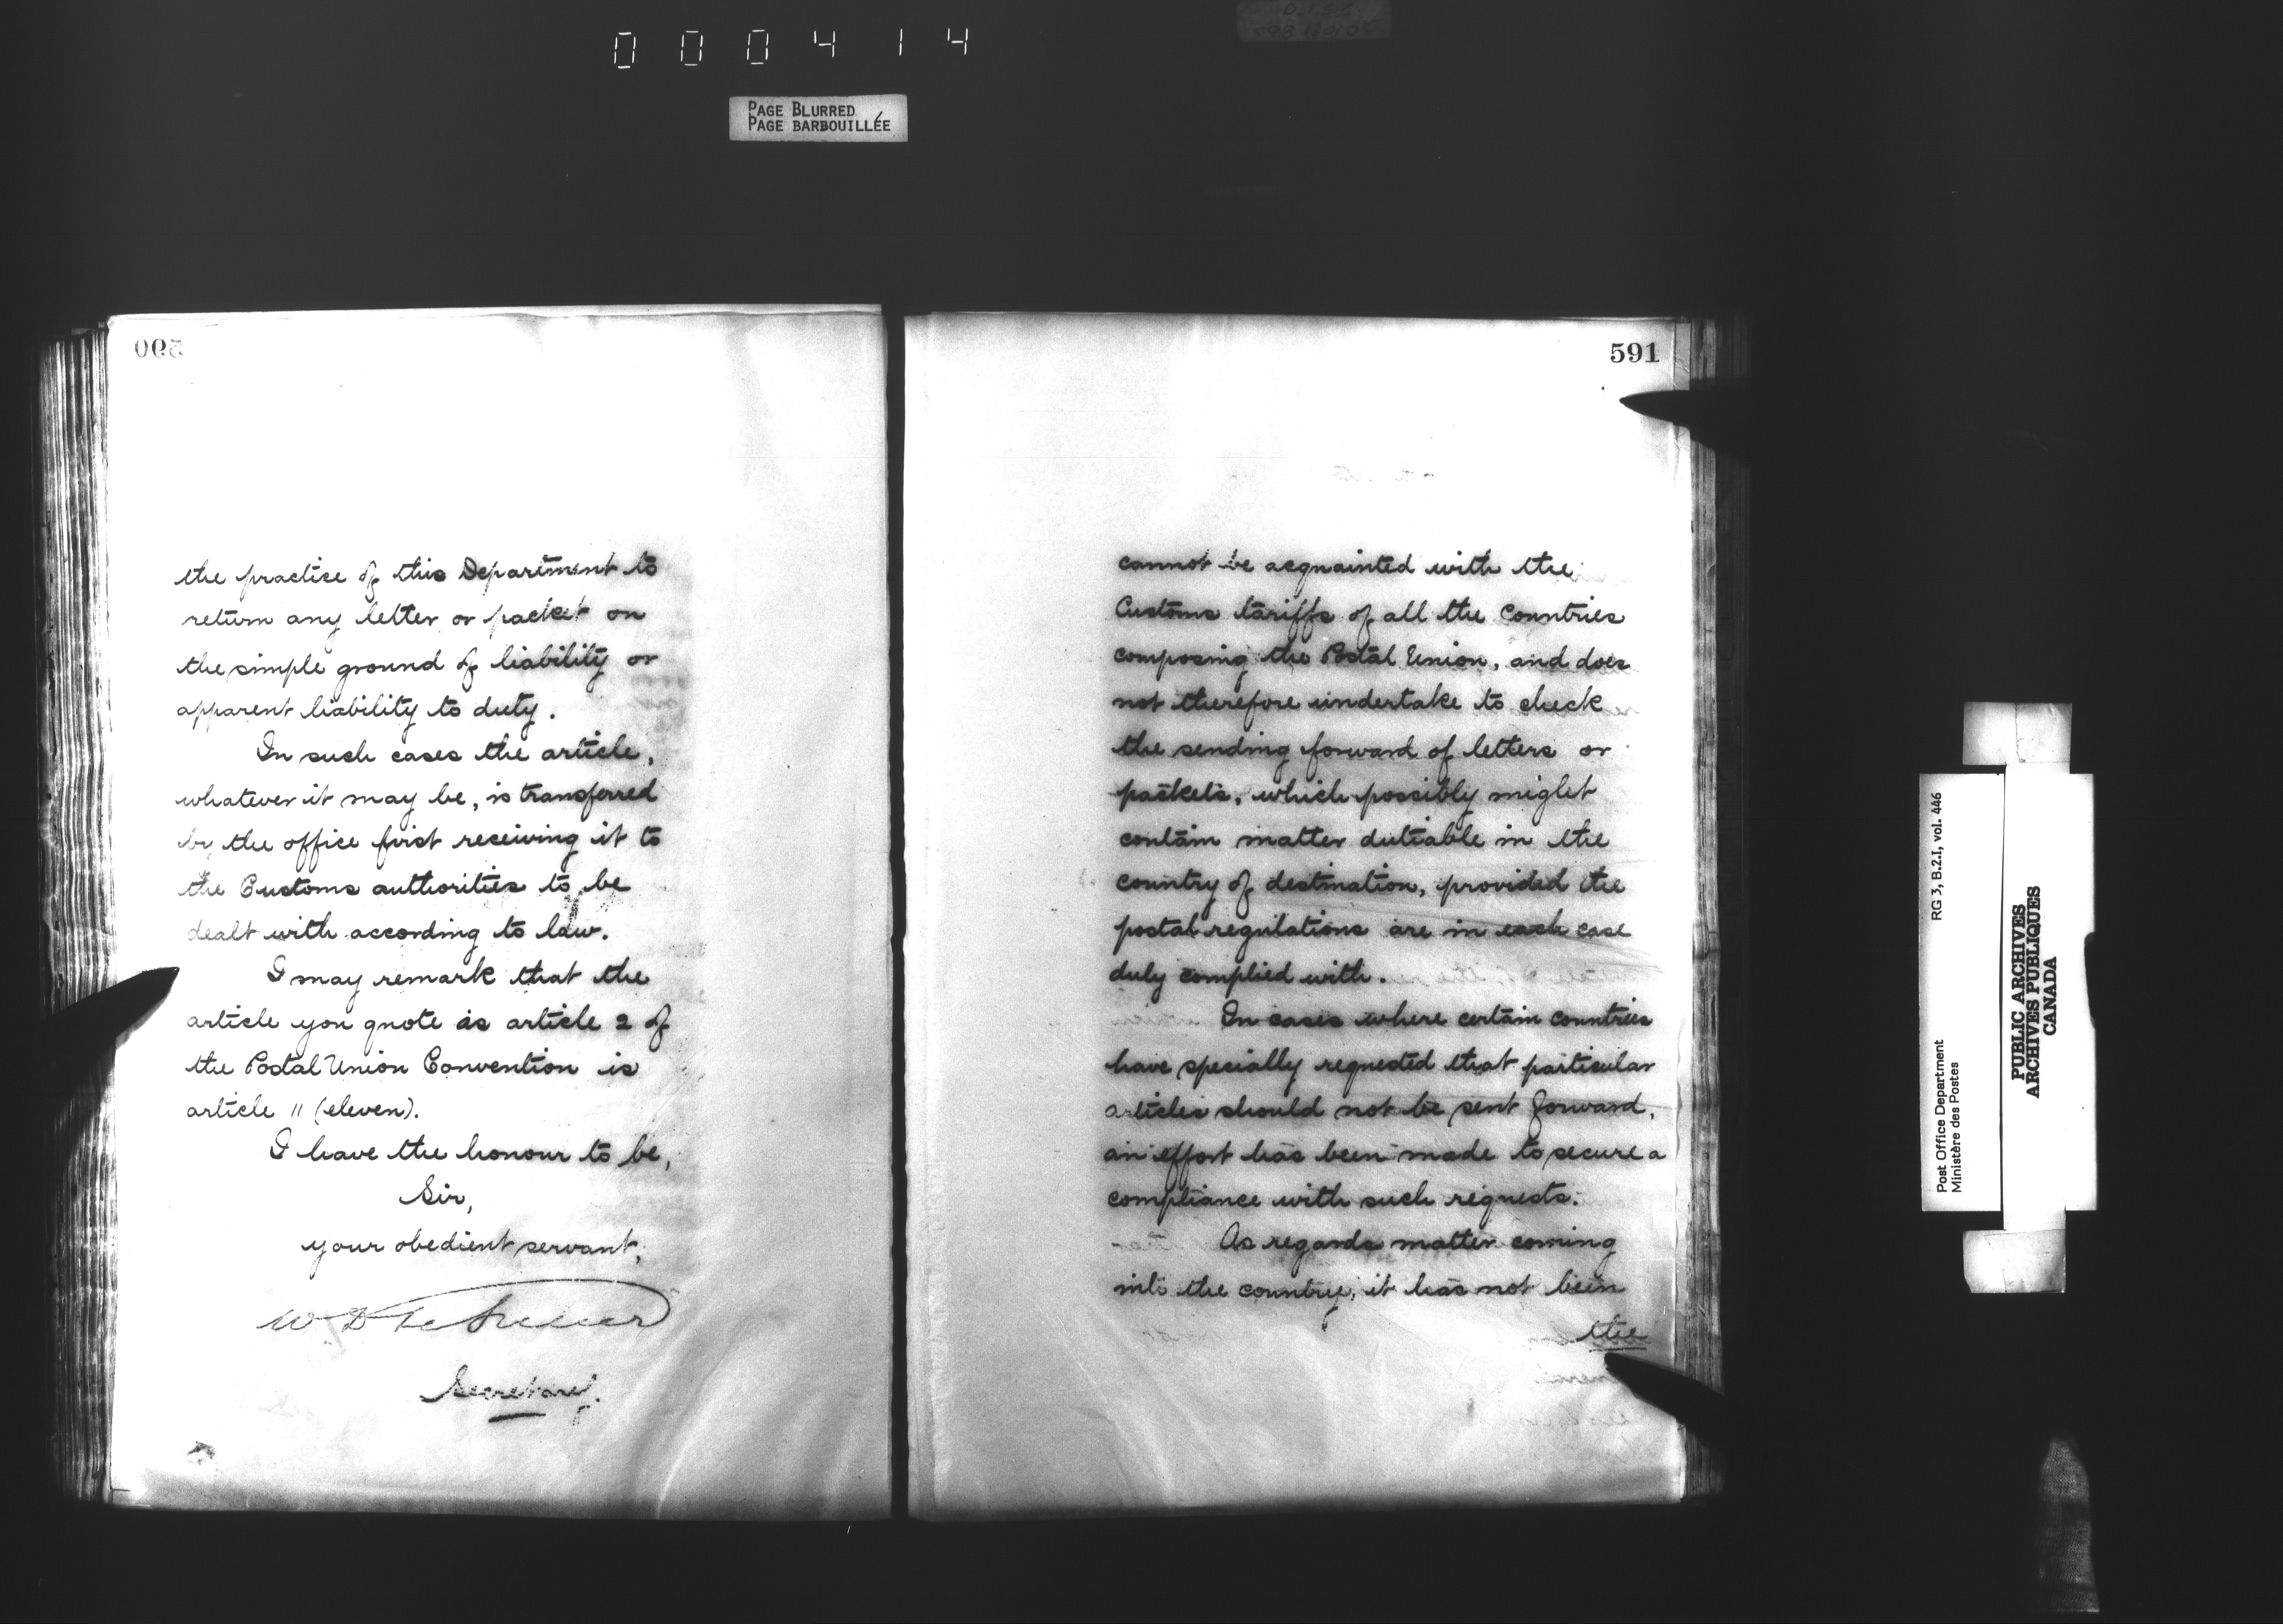 000414
PAGE BLURRED
PAGE BARBOUILLÉE
590
the practice of this Department to
return any letter or packet on
the simple ground of liability or
apparent liability to duty.
In such cases the article,
whatever it may be, is transferred
by the office first receiving it to
the Customs authorities to be
dealt with according to law.
I may remark that the
article you quote as article 2 of
the Postal Union Convention is
article 11 (eleven).
I have the honour to be,
Sir,
your obedient servant,
Secretary.
591
cannot be acquainted with the
Customs tariffs of all the Countries
composing the Postal Union, and does
not therefore undertake to check
the sending forward of letters or
packets, which possibly might
contain matter dutiable in the
country of destination, provided the
postal regulations are in each case
duly complied with.
In cases where certain countries
have specially requested that particular
articles should not be sent forward,
an effort has been made to secure a
compliance with such requests.
As regards matter coming
into the country, it has not been
the
Post Office Department RG 3, B.2.I, vol. 446
Ministère des Postes
PUBLIC ARCHIVES
ARCHIVES PUBLIQUES
CANADA